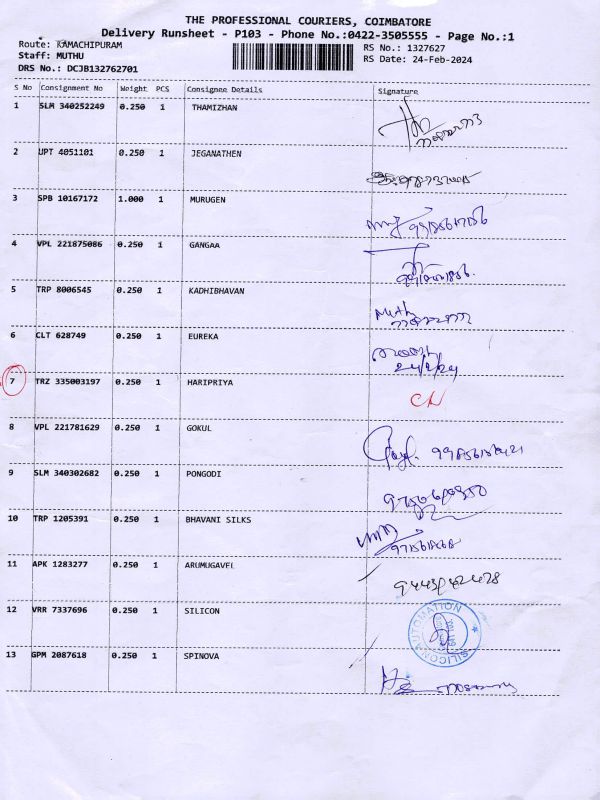 THE PROFESSIONAL COURIERS, COIMBATORE
Delivery Runsheet - P103 - Phone No.:0422-3505555 - Page No.:1
Route: KAMACHIPURAM
RS No.: 1327627
Staff: MUTHU
RS Date: 24-Feb-2024
DRS No.: DCJB132762701
S No Consignment No Weight PCS Consignee Details Signature
1 SLM 340252249 0.250 1 THAMIZHAN
2 UPT 4051101 0.250 1 JEGANATHEN
3 SPB 10167172 1.000 1 MURUGEN
4 VPL 221875086 0.250 1 GANGAA
5 TRP 8006545 0.250 1 KADHIBHAVAN
Muth
6 CLT 628749 0.250 1 EUREKA
24/2/24
7 TRZ 335003197 0.250 1 HARIPRIYA
8 VPL 221781629 0.250 1 GOKUL
9 SLM 340302682 0.250 1 PONGODI
10 TRP 1205391 0.250 1 BHAVANI SILKS
11 APK 1283277 0.250 1 ARUMUGAVEL
12 VRR 7337696 0.250 1 SILICON
SILICON AUTOMATION
13 GPM 2087618 0.250 1 SPINOVA